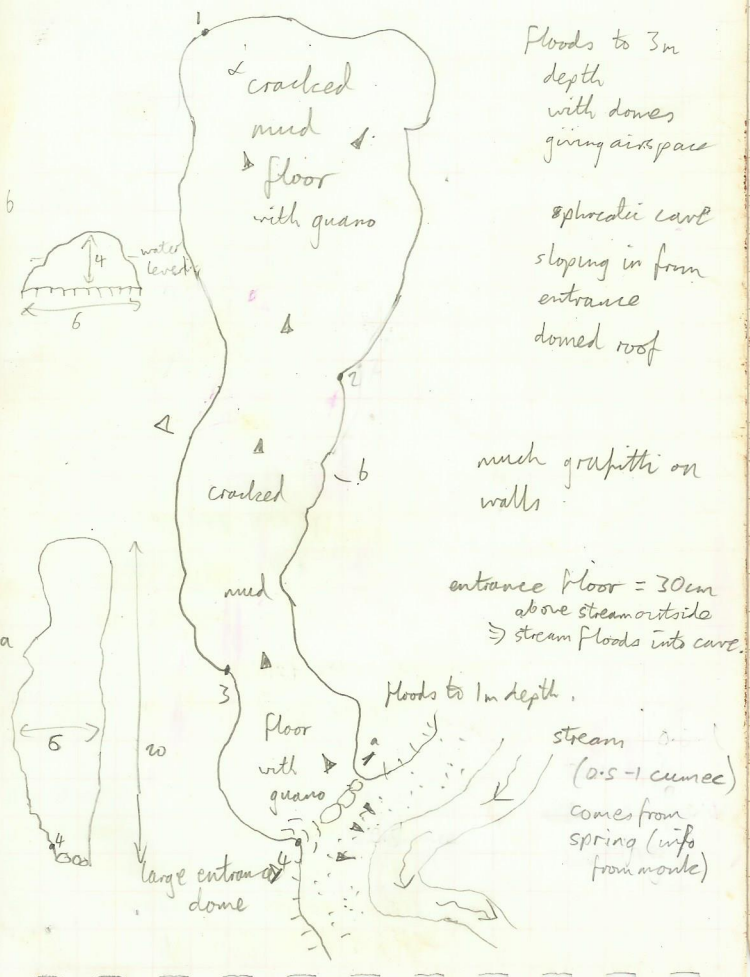 1
α
cracked
mud
floor
with guano
Floods to 3m
depth
with domes
giving airspace
phreatic cave
sloping in from
entrance
domed roof
b
4
water
level
6
2
b
cracked
much grafitti on
walls
mud
entrance floor = 30cm
above stream outside
⇒ stream floods into cave.
a
3
floods to 1m depth.
6
20
floor
with
guano
a
stream
(0.5-1 cumec)
comes from
spring (info
from monk)
4
4
large entrance
dome